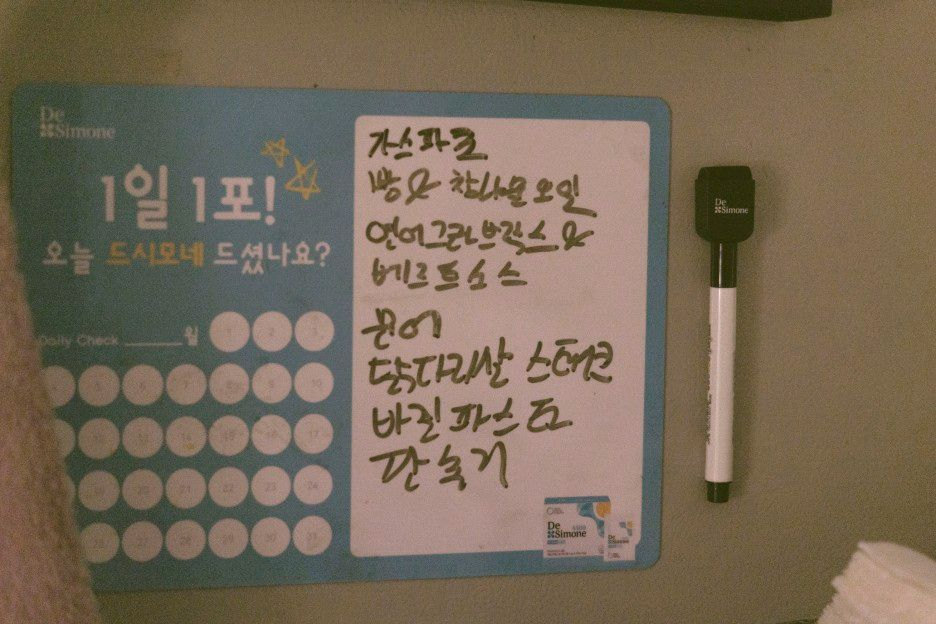 De Simone
1일 1포!
오늘 드시모네 드셨나요?
Daily Check 월
1 2 3
5 6 7 8 9 10
12 13 14 15 16 17
19 20 21 22 23 24
26 27 28 29 30 31
가스파쵸
빵 & 참나물오일
연어그라브락스 &
베르트소스
문어
닭다리살 스테이크
바질파스타
판숙기
De Simone
De Simone
De Simone